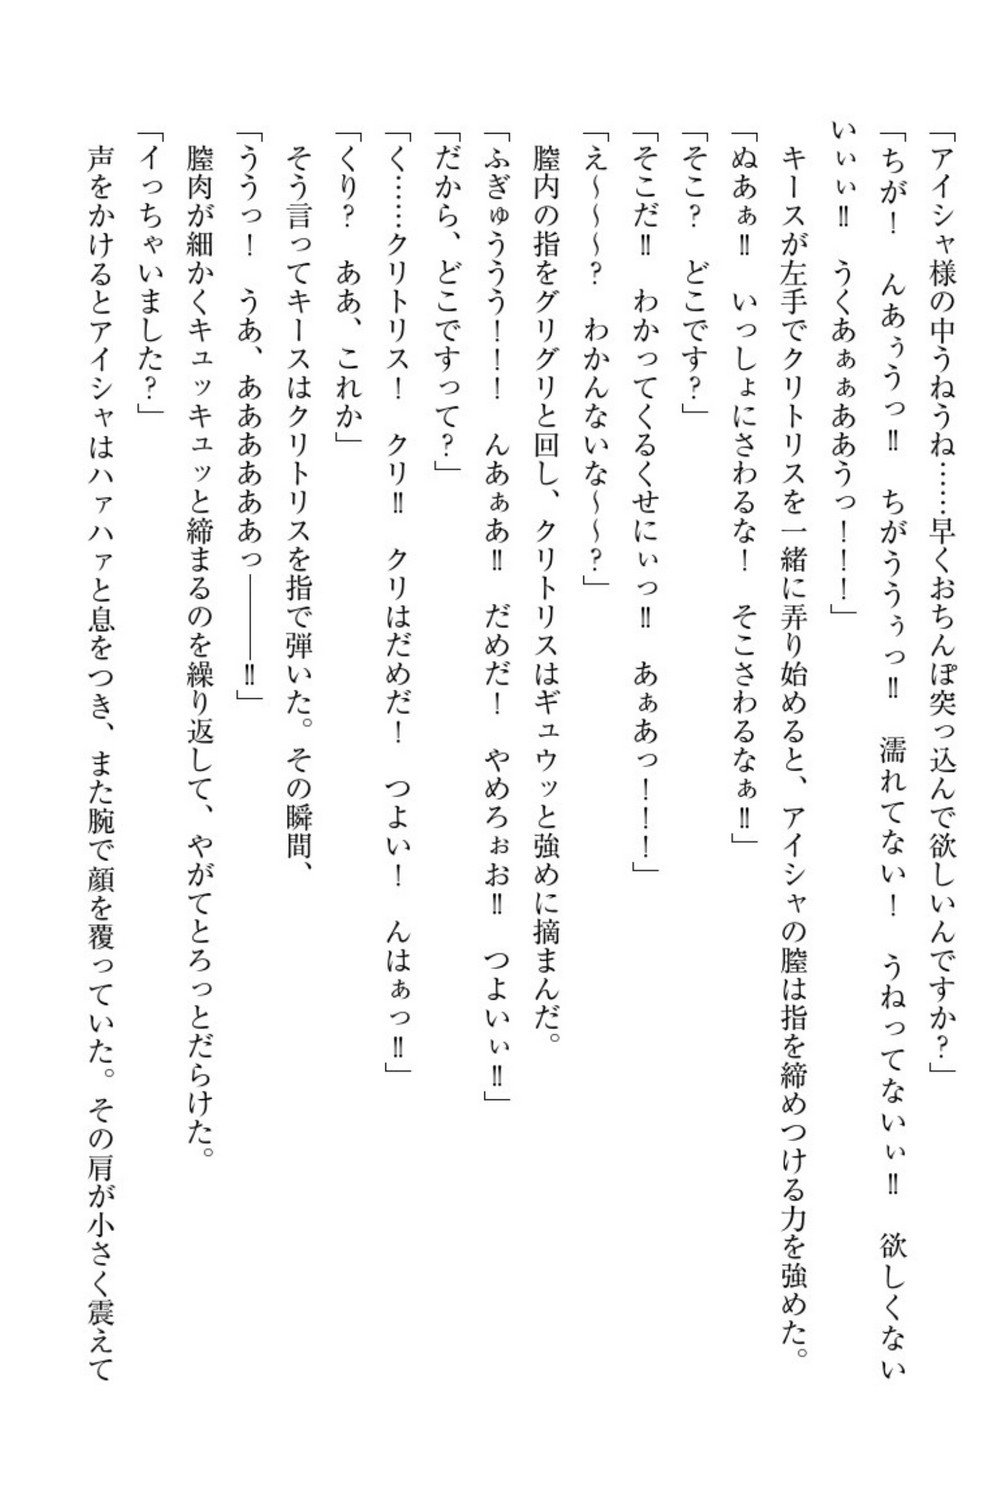 「アイシャ様の中うねうね……早くおちんぽ突っ込んで欲しいんですか？」
「ちが！　んあぅうっ‼　ちがううぅっ‼　濡れてない！　うねってないぃ‼　欲しくない
いぃぃ‼　うくあぁぁああうっ！！！」
キースが左手でクリトリスを一緒に弄り始めると、アイシャの膣は指を締めつける力を強めた。
「ぬあぁ‼　いっしょにさわるな！　そこさわるなぁ‼」
「そこ？　どこです？」
「そこだ‼　わかってくるくせにぃっ‼　あぁあっ！！！」
「え～～～？　わかんないな～～？」
膣内の指をグリグリと回し、クリトリスはギュウッと強めに摘まんだ。
「ふぎゅううう！！！　んあぁあ‼　だめだ！　やめろぉお‼　つよいぃ‼」
「だから、どこですって？」
「く……クリトリス！　クリ‼　クリはだめだ！　つよい！　んはぁっ‼」
「くり？　ああ、これか」
そう言ってキースはクリトリスを指で弾いた。その瞬間、
「ううっ！　うあ、ああああああっ――――‼」
膣肉が細かくキュッキュッと締まるのを繰り返して、やがてとろっとだらけた。
「イっちゃいました？」
声をかけるとアイシャはハァハァと息をつき、また腕で顔を覆っていた。その肩が小さく震えて